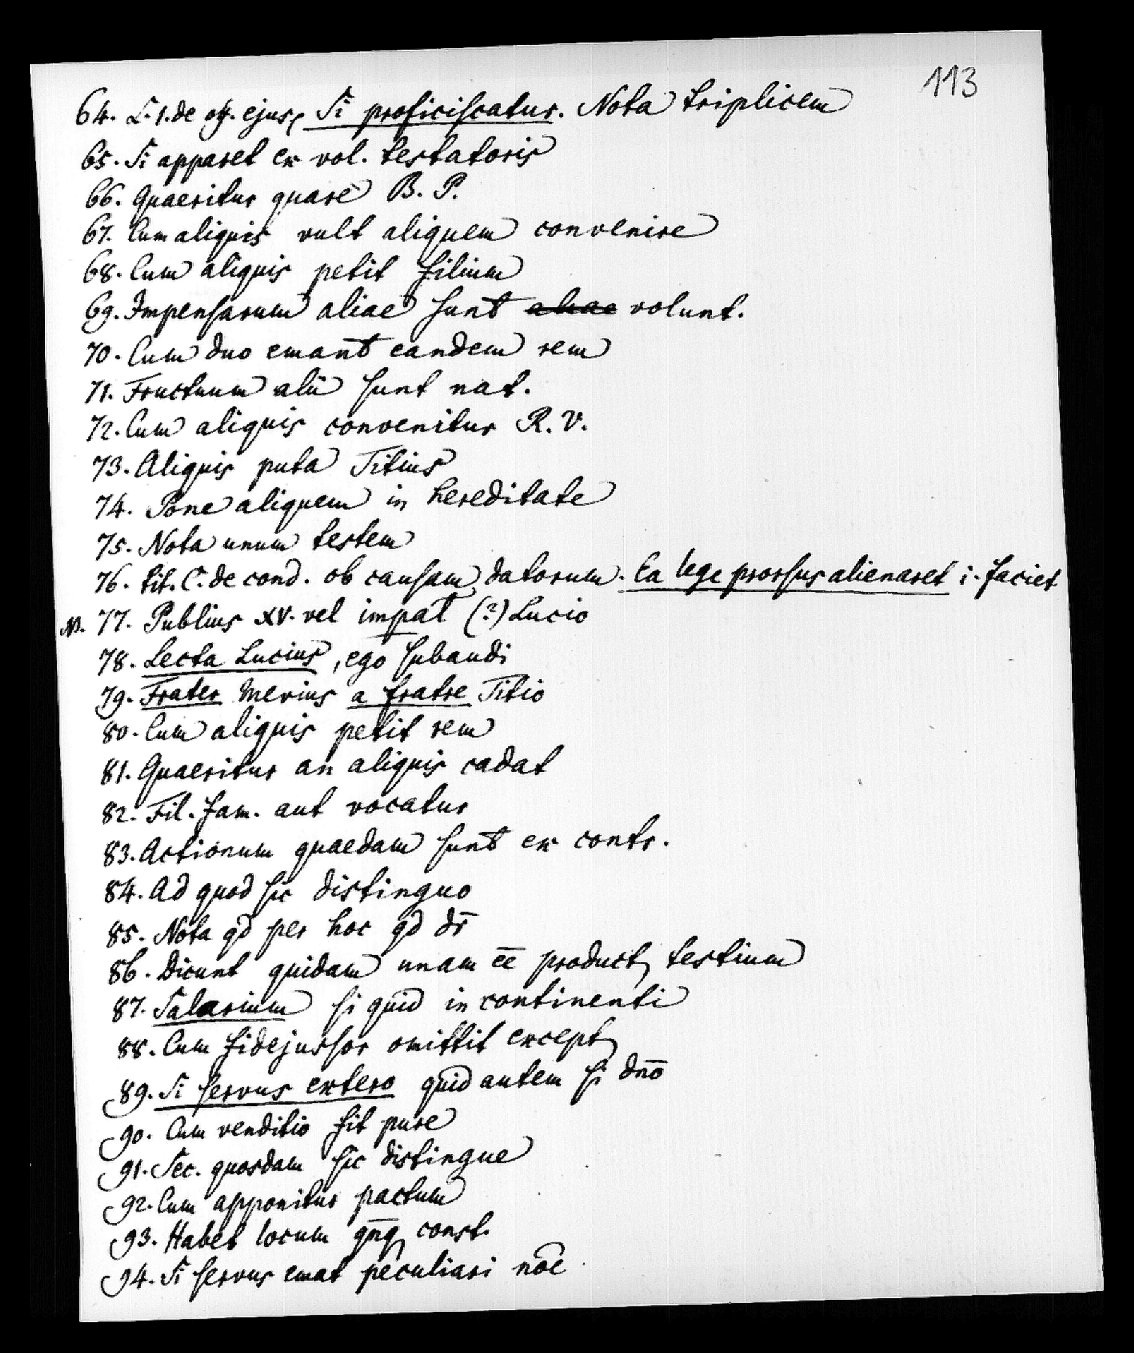 113
64. L. 1. de off. ejus, Si proficiscatur. Nota triplicem
65. Si apparet ex vol. testatoris
66. Quaeritur quare B. P.
67. Cum aliquis vult aliquem convenire
68. Cum aliquis petit filium
69. Impensarum aliae sunt aliae volunt.
70. Cum duo emant eandem rem
71. Fructuum alii sunt nat.
72. Cum aliquis convenitur R. V.
73. Aliquis puta Titius
74. Pone aliquem in hereditate
75. Nota unum testem
76. tit. C. de cond. ob causam datorum. Ea lege prorsus alienaret i. faciet
77. Publius XV. vel impat (?) Lucio
78. Lecta Lucius, ego subaudi
79. Frater Mevius a fratre Titio
80. Cum aliquis petit rem
81. Quaeritur an aliquis cadat
82. Fil. fam. aut vocatur
83. Actionum quaedam sunt ex contr.
84. Ad quod sic distinguo
85. Nota qd per hoc qd dr̄
86. Dicunt quidam unam ēē product, testium
87. Salarium si quid in continenti
88. Cum fidejussor omittit except,
89. Si servus extero quid autem si dn̄o
90. Cum venditio fit pure
91. Sec. quosdam sic distingue
92. Cum apponitur pactum
93. Habet locum qn̄q, const.
94. Si servus emat peculiari nōe